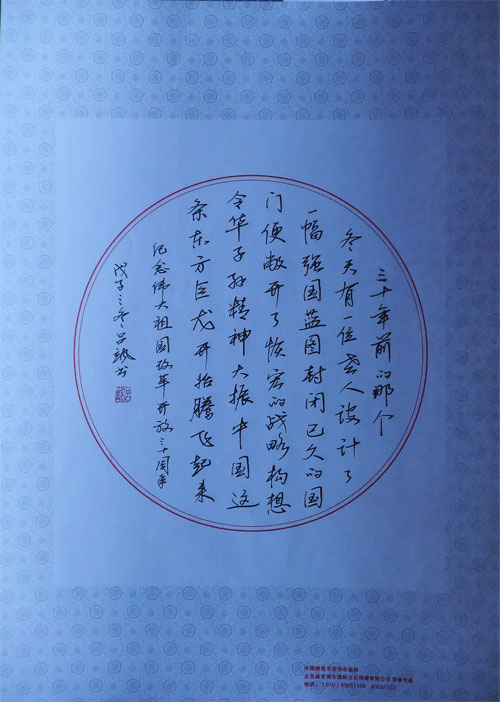 三十年前的那个
冬天有一位老人设计了
一幅强国蓝图封闭已久的国
门便敞开了恢宏的战略构想
令华子孙精神大振中国这
条东方巨龙开始腾飞起来
纪念伟大祖国改革开放三十周年
戊子之冬吕
书